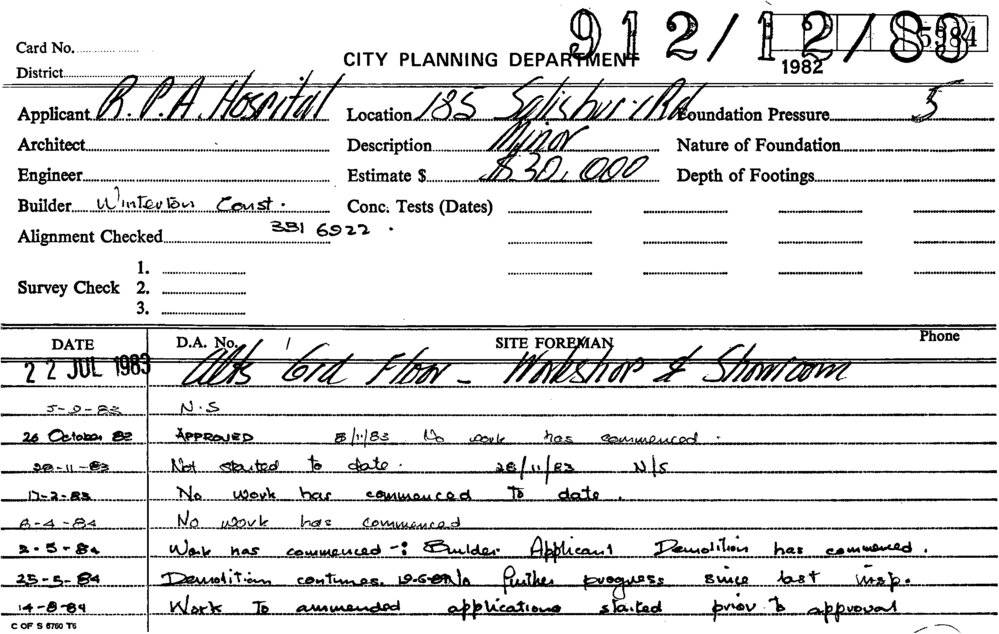 Card No.
912/12/83
5984
1982
CITY PLANNING DEPARTMENT
District
Applicant R.P.A. Hospital Location 185 Salisbury Rd Foundation Pressure 5
Architect Description Minor Nature of Foundation
Engineer Estimate $ $30,000 Depth of Footings
Builder Winterton Const. Conc. Tests (Dates)
Alignment Checked 331 6922.
1.
Survey Check 2.
3.
DATE D.A. No. SITE FOREMAN Phone
22 JUL 1983 Alts Grd Floor - Workshop & Showroom
5-9-83 N.S
26 October 83 APPROVED 8/11/83 No work has commenced.
28-11-83 Not started to date. 28/11/83 N/S
No work has commenced to date.
6-4-84 No work has commenced
2-5-84 Work has commenced -: Builder Applicant Demolition has commenced.
25-5-84 Demolition continues. 19-6-84 No further progress since last insp.
14-8-84 Work To ammended applications started prior to approval
C OF S 6760 T6